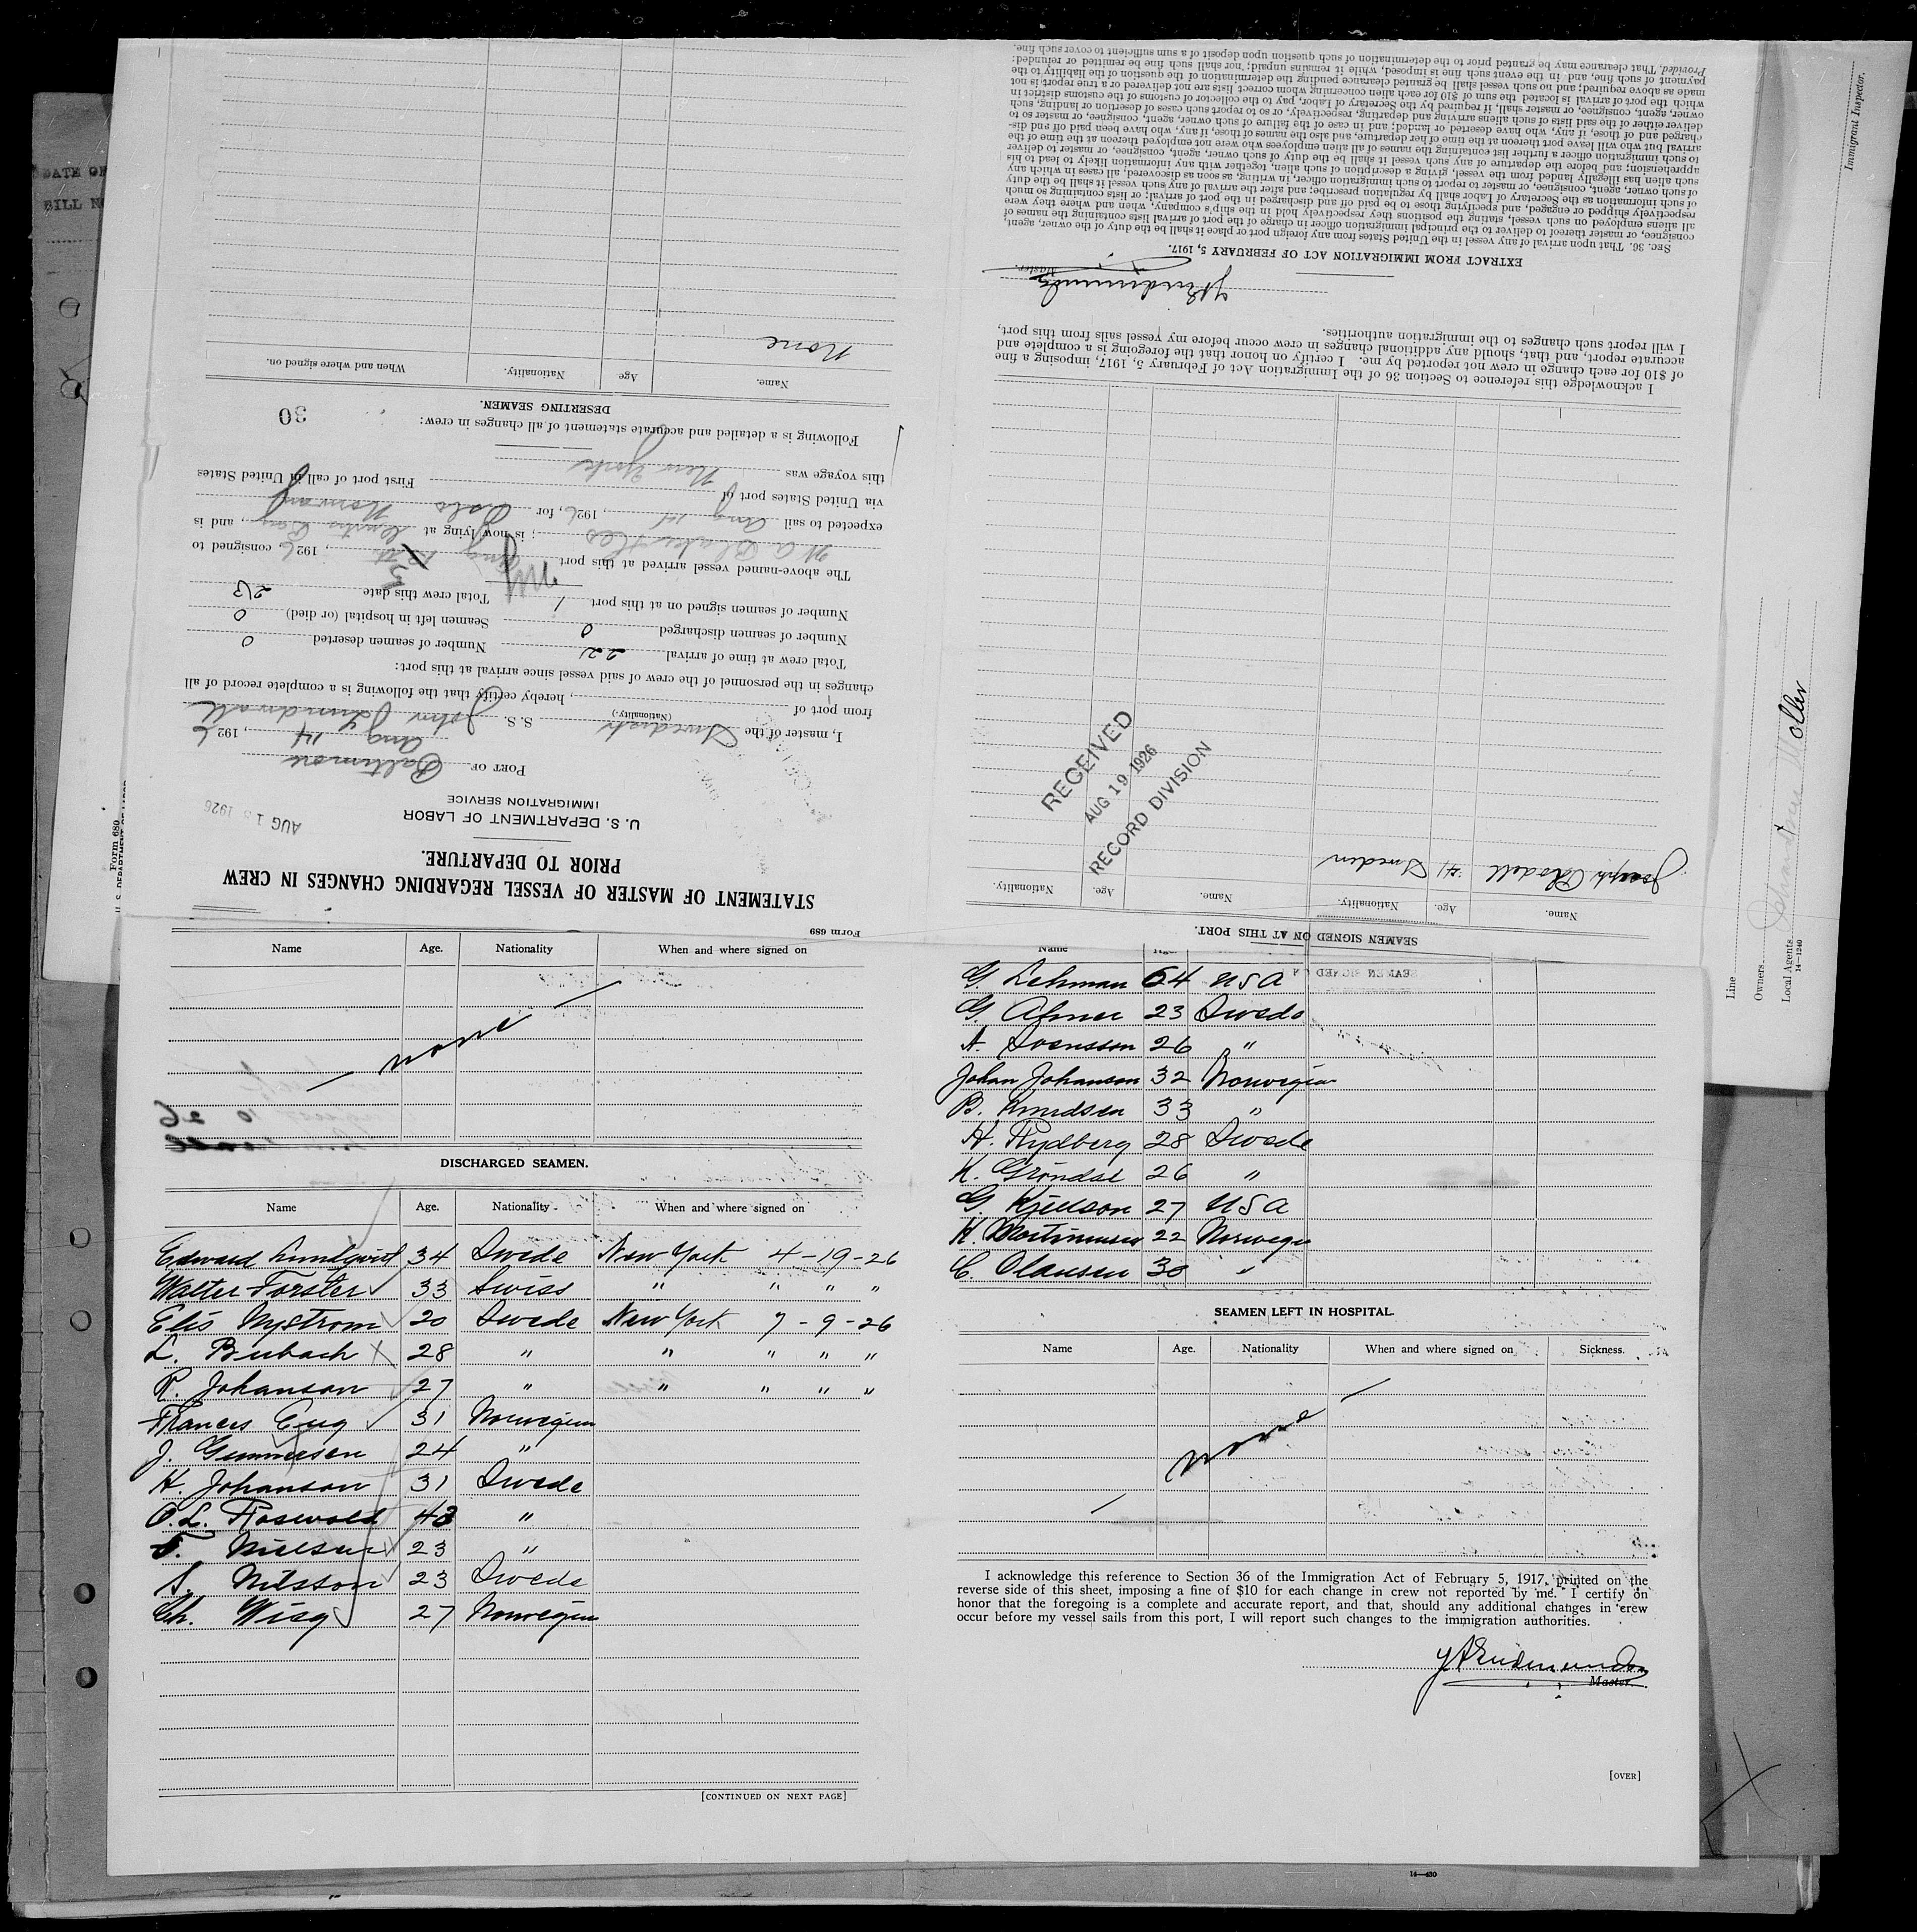 Form 689
STATEMENT OF MASTER OF VESSEL REGARDING CHANGES IN CREW
PRIOR TO DEPARTURE.
U. S. DEPARTMENT OF LABOR
IMMIGRATION SERVICE
AUG 1 1926
PORT OF Baltimore
Aug 14, 1926
I, master of the Swedish S. S. John Lundvall
(Nationality.)
from port of , hereby certify that the following is a complete record of all
changes in the personnel of the crew of said vessel since arrival at this port:
Total crew at time of arrival 22 Number of seamen deserted 0
Number of seamen discharged 0 Seamen left in hospital (or died) 0
Number of seamen signed on at this port 1 Total crew this date 23
The above-named vessel arrived at this port Aug , 1926 consigned to
; is now lying at , and is
expected to sail Aug 14, 1926, for Oslo Norway
via United States port of First port of call in United States
this voyage was New York
Following is a detailed and accurate statement of all changes in crew:
30
DESERTING SEAMEN.
Name. Age Nationality. When and where signed on.
None
SEAMEN SIGNED ON AT THIS PORT.
Name. Age. Nationality. Name. Age. Nationality.
Joseph 41 Sweden
RECEIVED
AUG 19 1926
RECORD DIVISION
I acknowledge this reference to Section 36 of the Immigration Act of February 5, 1917, imposing a fine
of $10 for each change in crew not reported by me. I certify on honor that the foregoing is a complete and
accurate report, and that, should any additional changes in crew occur before my vessel sails from this port,
I will report such changes to the immigration authorities.
Master.
EXTRACT FROM IMMIGRATION ACT OF FEBRUARY 5, 1917.
Sec. 36. That upon arrival of any vessel in the United States from any foreign port or place it shall be the duty of the owner, agent,
consignee, or master thereof to deliver to the principal immigration officer in charge of the port of arrival lists containing the names of
all aliens employed on such vessel, stating the positions they respectively hold in the ship's company, when and where they were
respectively shipped or engaged, and specifying those to be paid off and discharged in the port of arrival; or lists containing so much
of such information as the Secretary of Labor shall by regulation prescribe; and after the arrival of any such vessel it shall be the duty
of such owner, agent, consignee, or master to report to such immigration officer, in writing, as soon as discovered, all cases in which any
such alien has illegally landed from the vessel, giving a description of such alien, together with any information likely to lead to his
apprehension; and before the departure of any such vessel it shall be the duty of such owner, agent, consignee, or master to deliver
to such immigration officer a further list containing the names of all alien employees who were not employed thereon at the time of the
arrival but who will leave port thereon at the time of her departure, and also the names of those, if any, who have been paid off and dis-
charged and of those, if any, who have deserted or landed; and in case of the failure of such owner, agent, consignee, or master so to
deliver either of the said lists of such aliens arriving and departing, respectively, or so to report such cases of desertion or landing, such
owner, agent, consignee, or master shall, if required by the Secretary of Labor, pay to the collector of customs of the customs district in
which the port of arrival is located the sum of $10 for each alien concerning whom correct lists are not delivered or a true report is not
made as above required; and no such vessel shall be granted clearance pending the determination of the question of the liability to the
payment of such fine, and in the event such fine is imposed, while it remains unpaid; nor shall such fine be remitted or refunded:
Provided, That clearance may be granted prior to the determination of such question upon deposit of a sum sufficient to cover such fine.
Name Age. Nationality When and where signed on
— none —
DISCHARGED SEAMEN.
Name Age. Nationality When and where signed on
Edward Lundqvist 34 Swede New York 4-19-26
Walter Forster 33 Swiss " " " "
Elis Nystrom 20 Swede New York 7-9-26
L. Burbach 28 " " " " "
R. Johanson 27 " " " " "
Frances Eug 31 Norwegian
J. Gunnersen 24 "
H. Johanson 31 Swede
O.L. Roswold 43 "
T. Nielsen 23 "
S. Nilsson 23 Swede
Ch. Wisg 27 Norwegian
[CONTINUED ON NEXT PAGE]
Name
G. Lehman 64 USA
G. 23 Swede
A. Svensson 26 "
Johan Johanson 32 Norwegian
B. Knudsen 33 "
H. Rydberg 28 Swede
K. Gröndal 26 "
G. Kjellson 27 USA
K. Mortinusen 22 Norwegia
C. Olausen 30 "
SEAMEN LEFT IN HOSPITAL.
Name Age. Nationality When and where signed on Sickness.
— none —
I acknowledge this reference to Section 36 of the Immigration Act of February 5, 1917, printed on the
reverse side of this sheet, imposing a fine of $10 for each change in crew not reported by me. I certify on
honor that the foregoing is a complete and accurate report, and that, should any additional changes in crew
occur before my vessel sails from this port, I will report such changes to the immigration authorities.
Master.
[OVER]
14—430
DATE OF
BILL NO
Form 680
Immigrant Inspector.
Line
Owners
Local Agents
14-1240